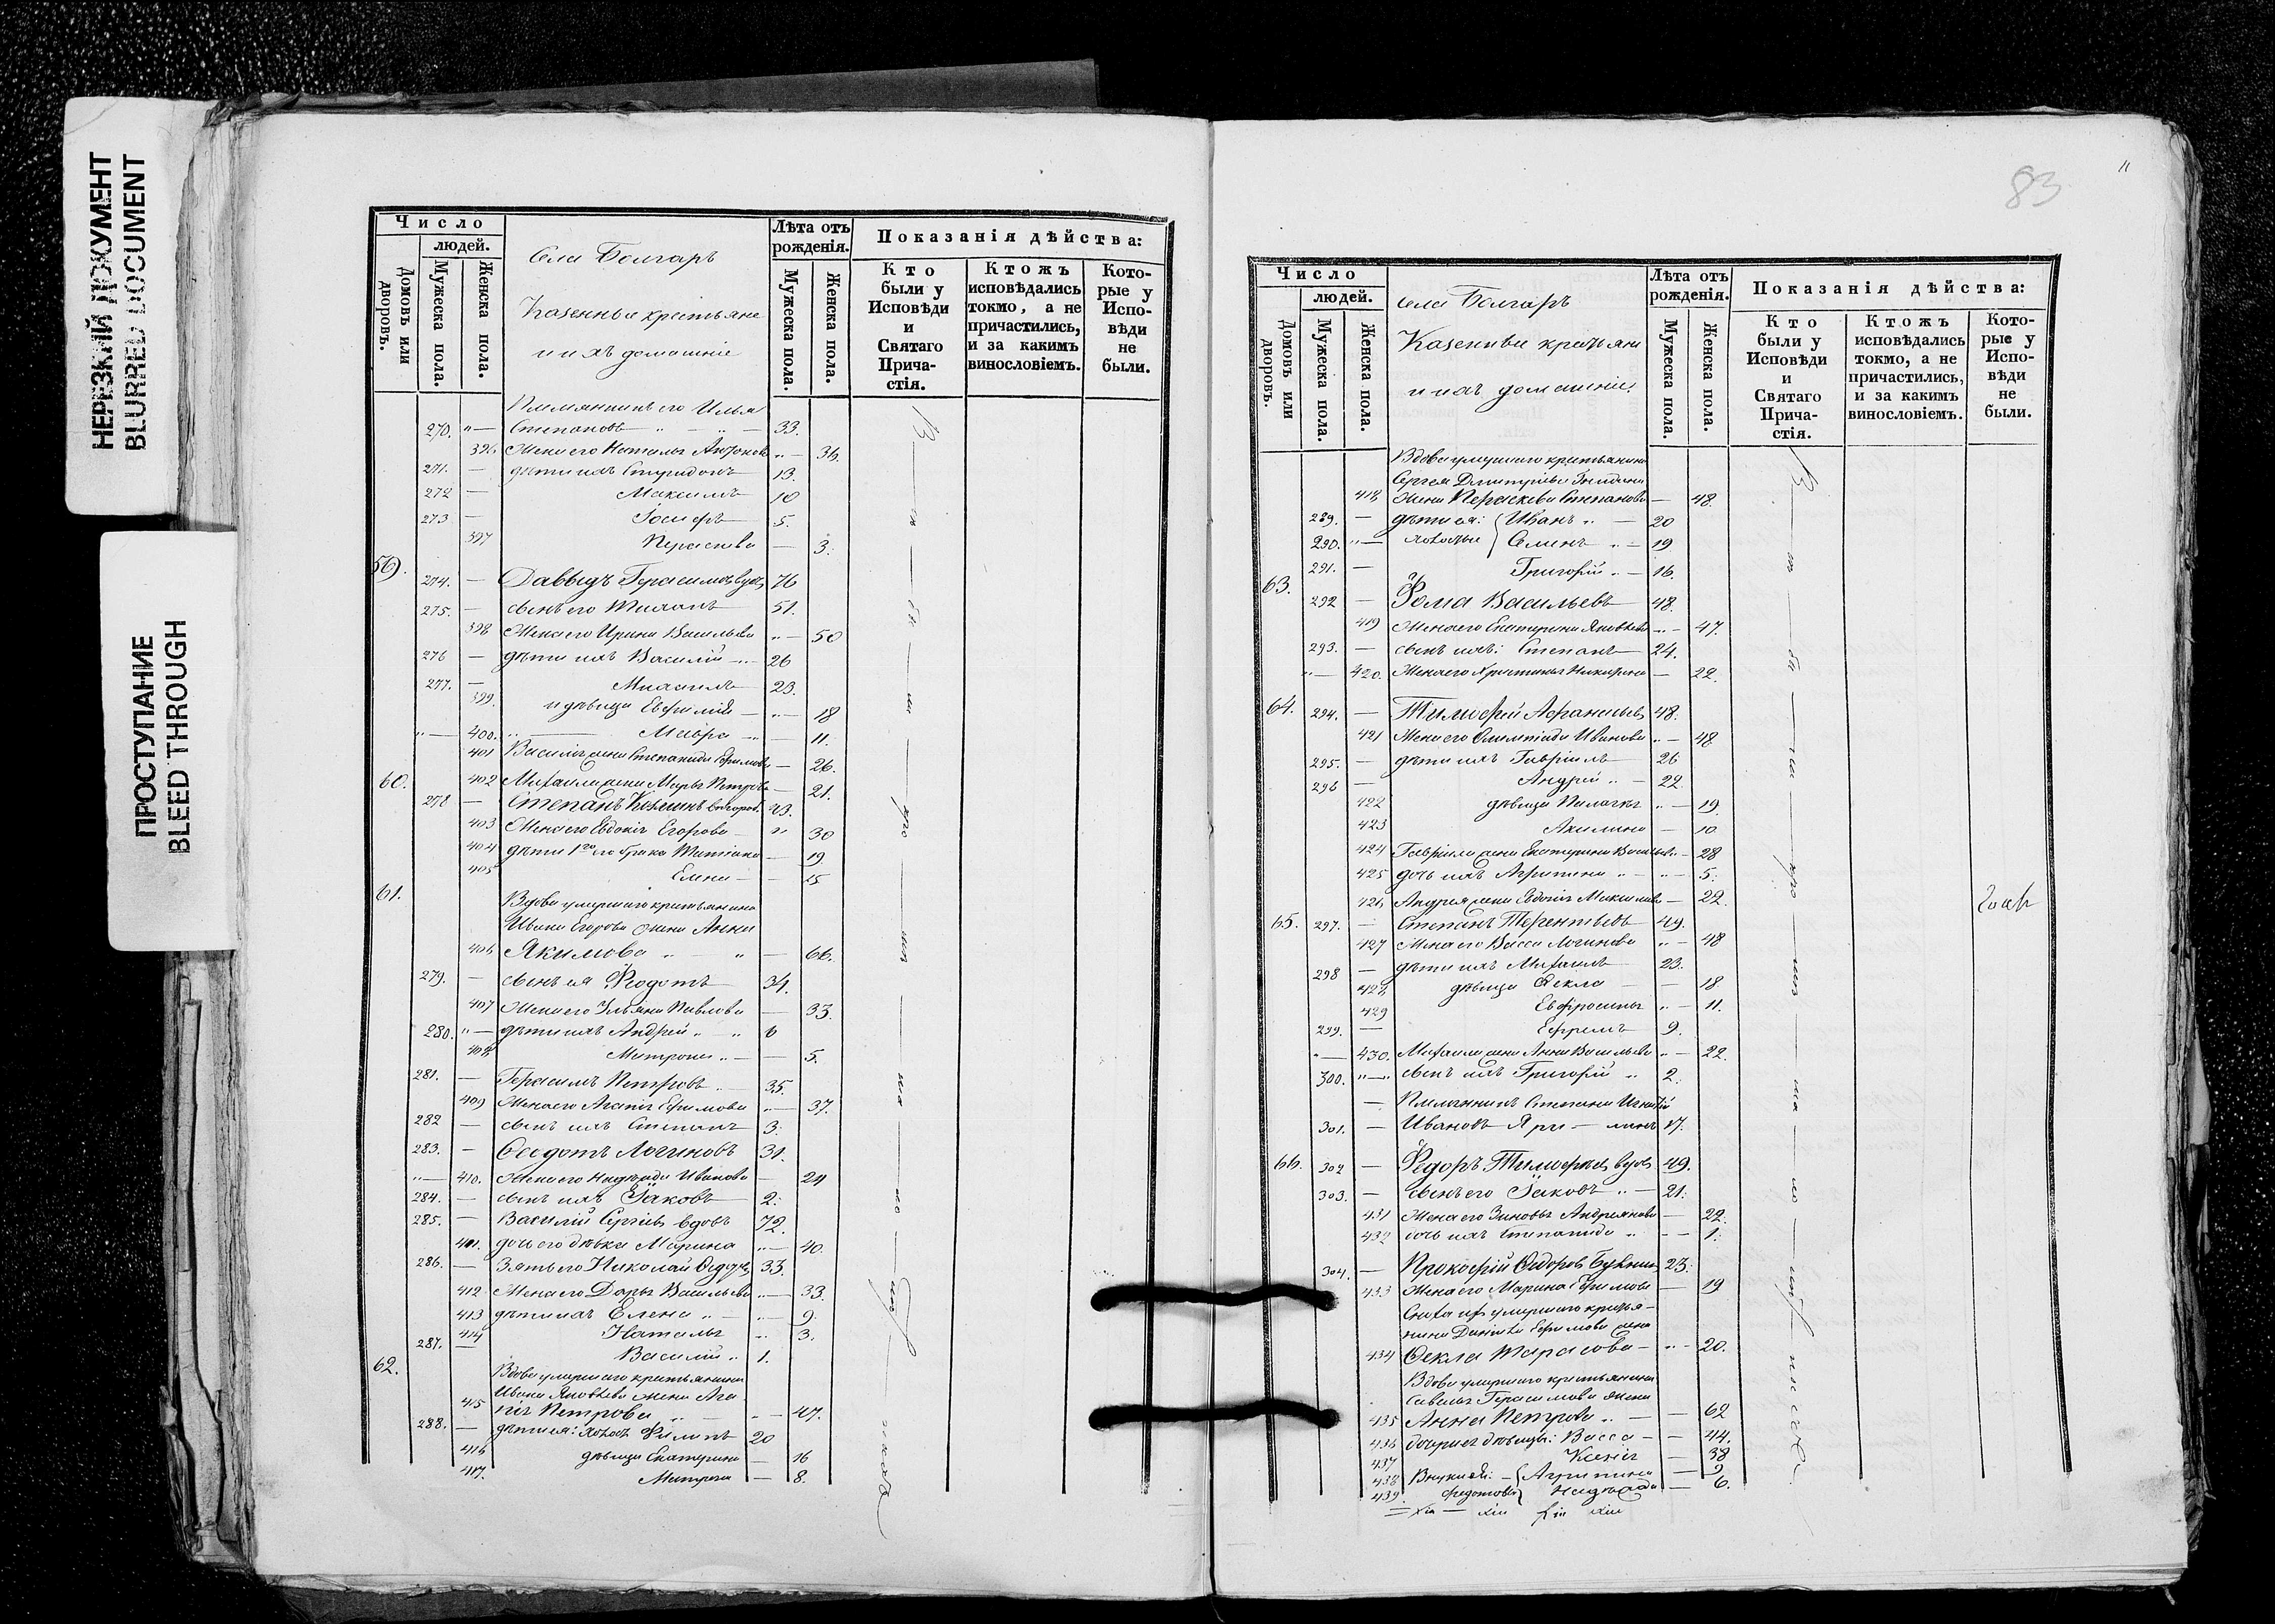 НЕРЕЗКИЙ ДОКУМЕНТ
BLURRED DOCUMENT
ПРОСТУПАНИЕ
BLEED THROUGH
Число
людей.
Домовъ или дворовъ.
Мужеска пола.
Женска пола.
Села Болгаръ
Казенные крестьяне
и ихъ домашніе
Лѣта отъ рожденія.
Мужеска пола.
Женска пола.
Показанія дѣйства:
Кто были у Исповѣди и Святаго Причастія.
Ктожъ исповѣдались токмо, а не причастились, и за какимъ винословіемъ.
Которые у Исповѣди не были.
Племянникъ его Илья
270. Степановъ 33.
396 Жена его Наталья Антонова 36.
271. дѣти ихъ Спиридонъ 13.
272 Максимъ 10
273 Іосифъ 5.
397 Параскева 3.
59. 274. Давыдъ Герасимовъ вдовъ 76
275. сынъ его 51.
398 Жена его Ирина Васильева 50
276 дѣти ихъ Василій 26
277. Михаилъ 23.
399. и дѣвица Евфимія 18
400. Мавра 11.
401 Василья жена Степанида Ефимова 26.
60. 402 Михаила жена Марья Петрова 21.
278 Степанъ 43.
403 Жена его Евдокія Егорова 30
404 дѣти 1го брака Татіана 19
405 Елена 15
61. Вдова умершаго крестьянина
Ивана Егорова жена Анна
406 Якимова 66.
279. сынъ ея Ѳодотъ 34.
407 Жена его Ульяна Павлова 33.
280. дѣти ихъ Андрей 6
408 Матрона 5.
281. Герасимъ Петровъ 35.
409 Жена его Агапія Ефимова 37.
282 сынъ ихъ Степанъ 3.
283. Ѳедотъ Логиновъ 31.
410. Жена его Надежда Иванова 24
284. сынъ ихъ Іаковъ 2.
285. Василій Сергіевъ вдовъ 72.
411. дочь его дѣвка Марина 40.
286. Зять его Николай 33.
412 Жена его Дарья Васильева 33.
413 дѣти ихъ Елена 9.
414 Наталья 3.
287. Василій 1.
62. Вдова умершаго крестьянина
Ивана Яковлева жена Ага
415 пія Петрова 47.
288. дѣти ея: холостъ Филипъ 20
416 дѣвица Екатерина 16
417. Матрона 8.
83
11
Число
людей.
Домовъ или дворовъ.
Мужеска пола.
Женска пола.
села Болгаръ
Казенные крестьяне
и ихъ домашніе
Лѣта отъ рожденія.
Мужеска пола.
Женска пола.
Показанія дѣйства:
Кто были у Исповѣди и Святаго Причастія.
Ктожъ исповѣдались токмо, а не причастились, и за какимъ винословіемъ.
Которые у Исповѣди не были.
Вдова умершаго крестьянина
Сергея Дмитріева
418 жена Параскева Степанова 48.
289. дѣти ея: Иванъ 20
290. холостые Семенъ 19
291. Григорій 16.
63. 292 Ѳома Васильевъ 48.
419 Жена его Екатерина Яковлева 47.
293. сынъ ихъ: Степанъ 24.
420. Жена его Христина Никифорова 22.
64. 294. Тимофей Афанасьевъ 48.
421 Жена его Олимпіада Иванова 48
295. дѣти ихъ Гавріилъ 26
296 Андрей 22.
422 дѣвица Пелагія 19
423 Акилина 10
424 Гавріила жена Екатерина Васильева 28
425 дочь ихъ Агрипина 5.
426 Андрея жена Евдокія Максимова 22.
65. 297. Степанъ Терентьевъ 49.
427 Жена его Васса Логинова 48
298 дѣти ихъ Михаилъ 23.
428 дѣвица Ѳекла 18
429 Евфросинья 11.
299. Ефремъ 9.
430. Михаила жена Анна Васильева 22.
300. сынъ ихъ Григорій 2.
Племянникъ Степана Игнатій
301. Ивановъ 17.
66. 302 Ѳедоръ Тимофеевъ вдовъ 49.
303. сынъ его Іаковъ 21.
431 Жена его Зиновья Андреянова 22.
432 дочь ихъ Степанида 1.
304. Прокофій Ѳедоровъ 23.
433 Жена его Марина Ефимова 19
Сноха их умершаго крестья-
нина Даніила Ефимова жена
434 Ѳекла Тарасова 20.
Вдова умершаго крестьянина
Савелья Герасимова жена
435 Анна Петрова 62
436 дочери ея дѣвицы: Васса 44.
437 Ксенія 38
438 Внуки ей: Агрипина 9
439. Ѳедотовы Надежда 6.